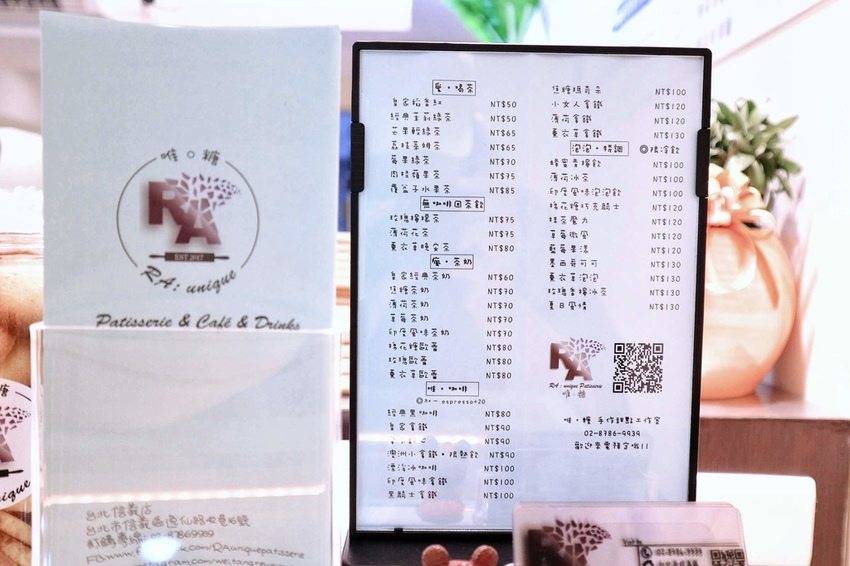 唯 糖
RA
EST 2017
RA: unique
Patisserie & Café & Drinks
台北信義店
台北市信義區逸仙路42巷16號
訂購專線
FB www.
com/RAuniquepatisserie
愛·喝茶
皇家稻香紅 NT$50
經典茉莉綠茶 NT$50
芒果輕綠茶 NT$65
荔枝茶姆茶 NT$65
莓果綠茶 NT$70
肉桂蘋果茶 NT$75
覆盆子水果茶 NT$85
無咖啡因茶飲
玫瑰檸檬茶 NT$75
薄荷花茶 NT$75
薰衣草晚安茶 NT$80
癮·茶奶
皇家經典茶奶 NT$60
焦糖茶奶 NT$70
薄荷茶奶 NT$70
草莓茶奶 NT$70
印度風味茶奶 NT$70
棉花糖歐蕾 NT$80
玫瑰歐蕾 NT$80
薰衣草歐蕾 NT$80
唯·咖啡
espresso+20
經典黑咖啡 NT$80
皇家拿鐵 NT$90
NT$90
澳洲小拿鐵·限熱飲 NT$90
漂浮冰咖啡 NT$100
印度風味拿鐵 NT$100
黑騎士拿鐵 NT$100
焦糖瑪奇朵 NT$100
小女人拿鐵 NT$120
薄荷拿鐵 NT$120
薰衣草拿鐵 NT$130
泡泡·特調 ◎限冷飲
蜂蜜香檸飲 NT$100
薄荷冰茶 NT$100
印度風味泡泡飲 NT$100
棉花糖巧克騎士 NT$120
抹茶魔力 NT$120
草莓微風 NT$120
藍莓果漾 NT$120
墨西哥可可 NT$130
薰衣草泡泡 NT$130
玫瑰香檸冰茶 NT$130
夏日風情 NT$130
RA
RA: unique Patisserie
唯·糖
唯·糖 手作甜點工作室
02-8786-9939
歡迎來電預定啦!!
RA
02-8786-9939
unique